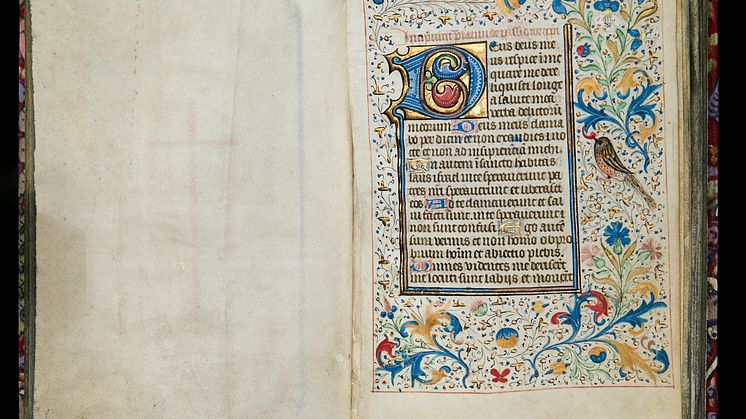 Incipiunt psalmi de passione xpi
Deus deus me
us respice i me
quare me dere
liquisti longe
a salute mea
verba delictoꝝ
meorum Deus meus clama
bo per diem et non exaudies i no
cte et non ad insipientiā michi
Tu autem i sancto habitas
laus israel in te speraverunt pa
tres nr̄i speraverunt et liberasti
eos Ad te clamaverunt et sal
vi facti sunt in te speraverunt
non sunt confusi Ego aut̄
sum vermis et non homo obpro
brium hoīm et abiectio plebis
Omnes videntes me deriserūt
me locuti sunt labijs et moverūt